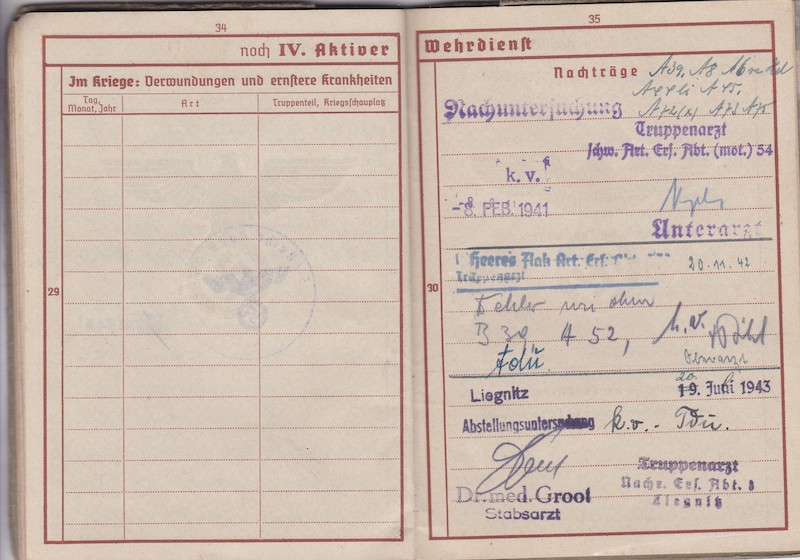 34
noch IV. Aktiver
Im Kriege: Verwundungen und ernstere Krankheiten
Tag, Monat, Jahr
Art
Truppenteil, Kriegsschauplatz
29
35
Wehrdienst
Nachträge A39, A8
A45.
A73 A75
Nachuntersuchung
Truppenarzt
schw. Art. Ers. Abt. (mot.) 54
k. v.
-8. FEB. 1941
Unterarzt
Heeres Flak Art. Ers.
20.11.42
Truppenarzt
30
Fehler wie oben
B 39 A 52, k.v.
tdu.
Oberarzt
20
Liegnitz 19. Juni 1943
Abstellungsuntersuchung k.v. - Tdu.
Truppenarzt
Nachr. Ers. Abt. 8
Liegnitz
Dr. med. Groot
Stabsarzt